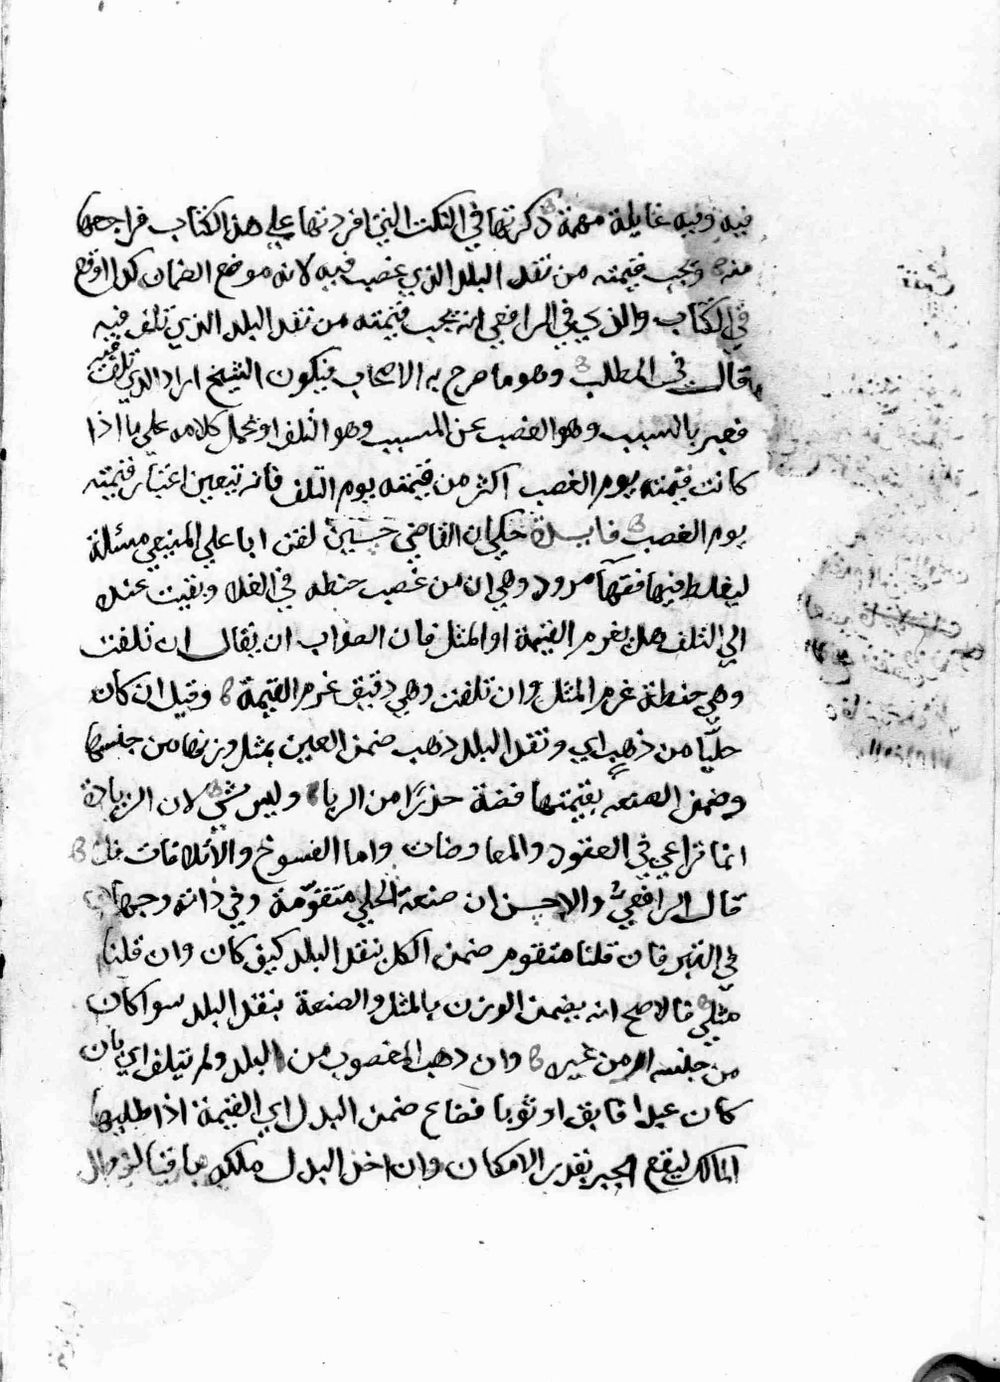 فيه وفيه غايلة مهمة ذكرتها في النكت التي افردتها علي هذا الكتاب فراجعها
منه وتجب قيمته من نقد البلد الذي غصب فيه لانه موضع الضمان كذا وقع
في الكتاب والذي في الرافعي انه تجب قيمته من نقد البلد الذي تلف فيه
قال في المطلب وهو ما صرح به الاصحاب فيكون الشيخ اراد الذي تلفت فيه
فعبر بالسبب وهو الغصب عن المسبب وهو التلف او نحمل كلامه علي ما اذا
كانت قيمته يوم الغصب اكثر من قيمته يوم التلف فانه يتعين اعتبار قيمته
يوم الغصب فايدة حكي ان القاضي حسين لقن ابا علي المنيعي مسئلة
ليغلط فيها فقهآ مرو وهي ان من غصب حنطه في الغلا وبقيت عنده
الي التلف هل يغرم القيمة او المثل فان الصواب ان يقال ان تلفت
وهي حنطة غرم المثل وان تلفت وهي دقيق غرم القيمة وقيل ان كان
حليًّا من ذهبٍ اي ونقد البلد ذهب ضمن العين بمثل وزنها من جنسها
وضمن الصنعه بقيمتها فضة حذرًا من الربا وليس بشي لان الزيادة
انما تراعي في العقود والمعاوضات واما الفسوخ والأتلافات فلا
قال الرافعي والاحسن ان صنعة الحلي متقوّمة وفي ذاته وجهان
في التبر فان قلنا متقوم ضمن الكل بنقد البلد كيف كان وان قلنا
مثلي فالاصح انه يضمن الوزن بالمثل والصنعة بنقد البلد سوا كان
من جنسه ام من غيره وان ذهب المغصوب من البلد ولم يتلف اي بان
كان عبدا فابق او ثوبا فضاع ضمن البدل اي القيمة اذا طلبها
المالك ليقع الجبر بقدر الامكان وان اخذ البدل ملكه